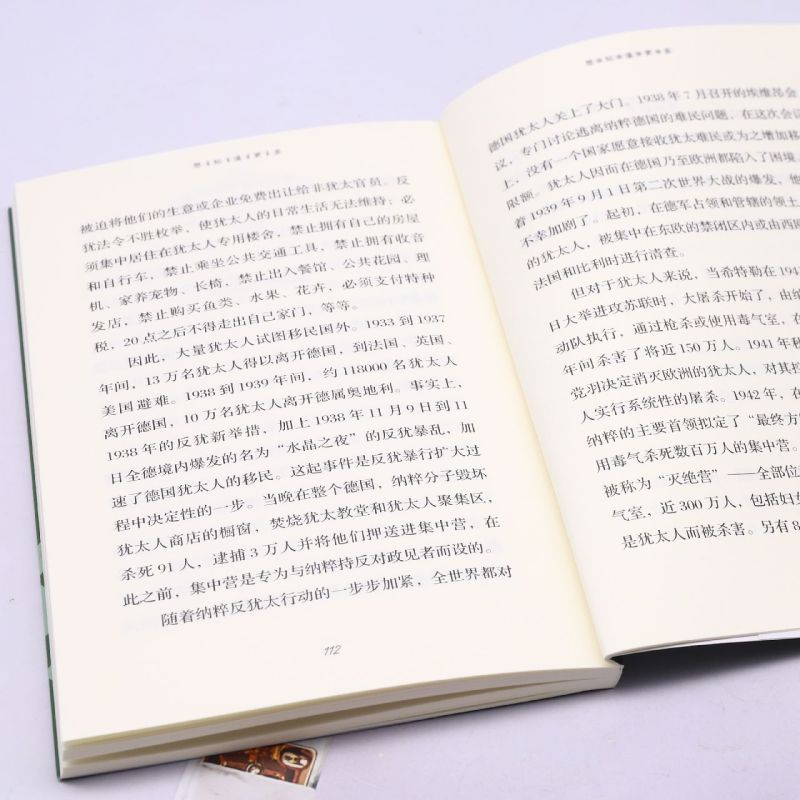 想★知★道★更★多
被迫将他们的生意或企业免费出让给非犹太官员。反
犹法令不胜枚举，使犹太人的日常生活无法维持：必
须集中居住在犹太人专用楼舍，禁止拥有自己的房屋
和自行车，禁止乘坐公共交通工具，禁止拥有收音
机、家养宠物、长椅，禁止出入餐馆、公共花园、理
发店，禁止购买鱼类、水果、花卉，必须支付特种
税，20 点之后不得走出自己家门，等等。
因此，大量犹太人试图移民国外。1933 到 1937
年间，13 万名犹太人得以离开德国，到法国、英国、
美国避难。1938 到 1939 年间，约 118000 名犹太人
离开德国，10 万名犹太人离开德属奥地利。事实上，
1938 年的反犹新举措，加上 1938 年 11 月 9 日到 11
日全德境内爆发的名为“水晶之夜”的反犹暴乱，加
速了德国犹太人的移民。这起事件是反犹暴行扩大过
程中决定性的一步。当晚在整个德国，纳粹分子毁坏
犹太人商店的橱窗，焚烧犹太教堂和犹太人聚集区，
杀死 91 人，逮捕 3 万人并将他们押送进集中营，在
此之前，集中营是专为与纳粹持反对政见者而设的。
随着纳粹反犹太行动的一步步加紧，全世界都对
112
想★知★道★更★多
德国犹太人关上了大门。1938 年 7 月召开的埃维昂会
议，专门讨论逃离纳粹德国的难民问题，在这次会议
上，没有一个国家愿意接收犹太难民或为之增加移
限额。犹太人因而在德国乃至欧洲都陷入了困境。
着 1939 年 9 月 1 日第二次世界大战的爆发，他
不幸加剧了。起初，在德军占领和管辖的领土
的犹太人，被集中在东欧的禁闭区内或由西
法国和比利时进行清查。
但对于犹太人来说，当希特勒在 194
日大举进攻苏联时，大屠杀开始了，由纳
动队执行，通过枪杀或使用毒气室，在
年间杀害了将近 150 万人。1941 年秋
党羽决定消灭欧洲的犹太人，对其控
人实行系统性的屠杀。1942 年，在
纳粹的主要首领拟定了“最终方
用毒气杀死数百万人的集中营。
被称为“灭绝营”——全部位
气室，近 300 万人，包括妇
是犹太人而被杀害。另有 8